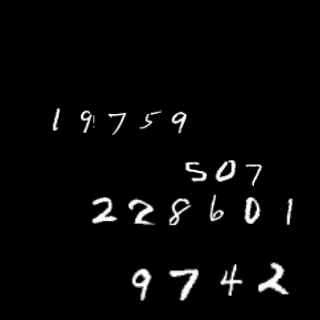 19759
507
228601
9742